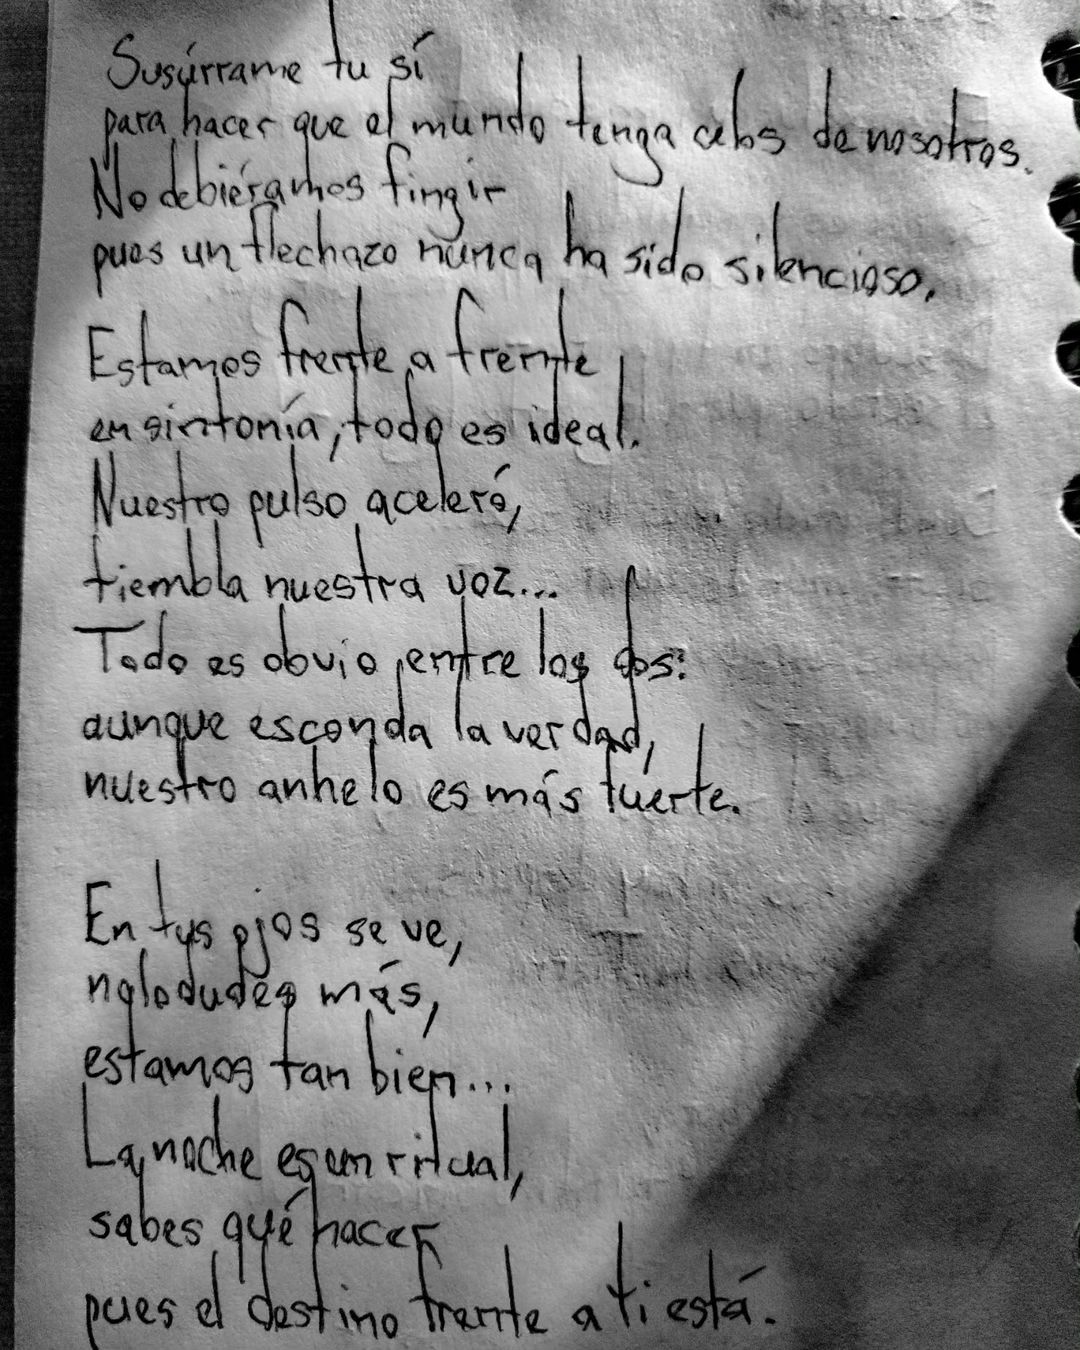 Susúrrame tu sí
para hacer que el mundo tenga celos de nosotros.
No debiéramos fingir
pues un flechazo nunca ha sido silencioso.
Estamos frente a frente
en sintonía, todo es ideal.
Nuestro pulso aceleró,
tiembla nuestra voz...
Todo es obvio entre los dos:
aunque esconda la verdad,
nuestro anhelo es más fuerte.
En tus ojos se ve,
no lo dudes más,
estamos tan bien...
La noche es un ritual,
sabes qué hacer
pues el destino frente a ti está.